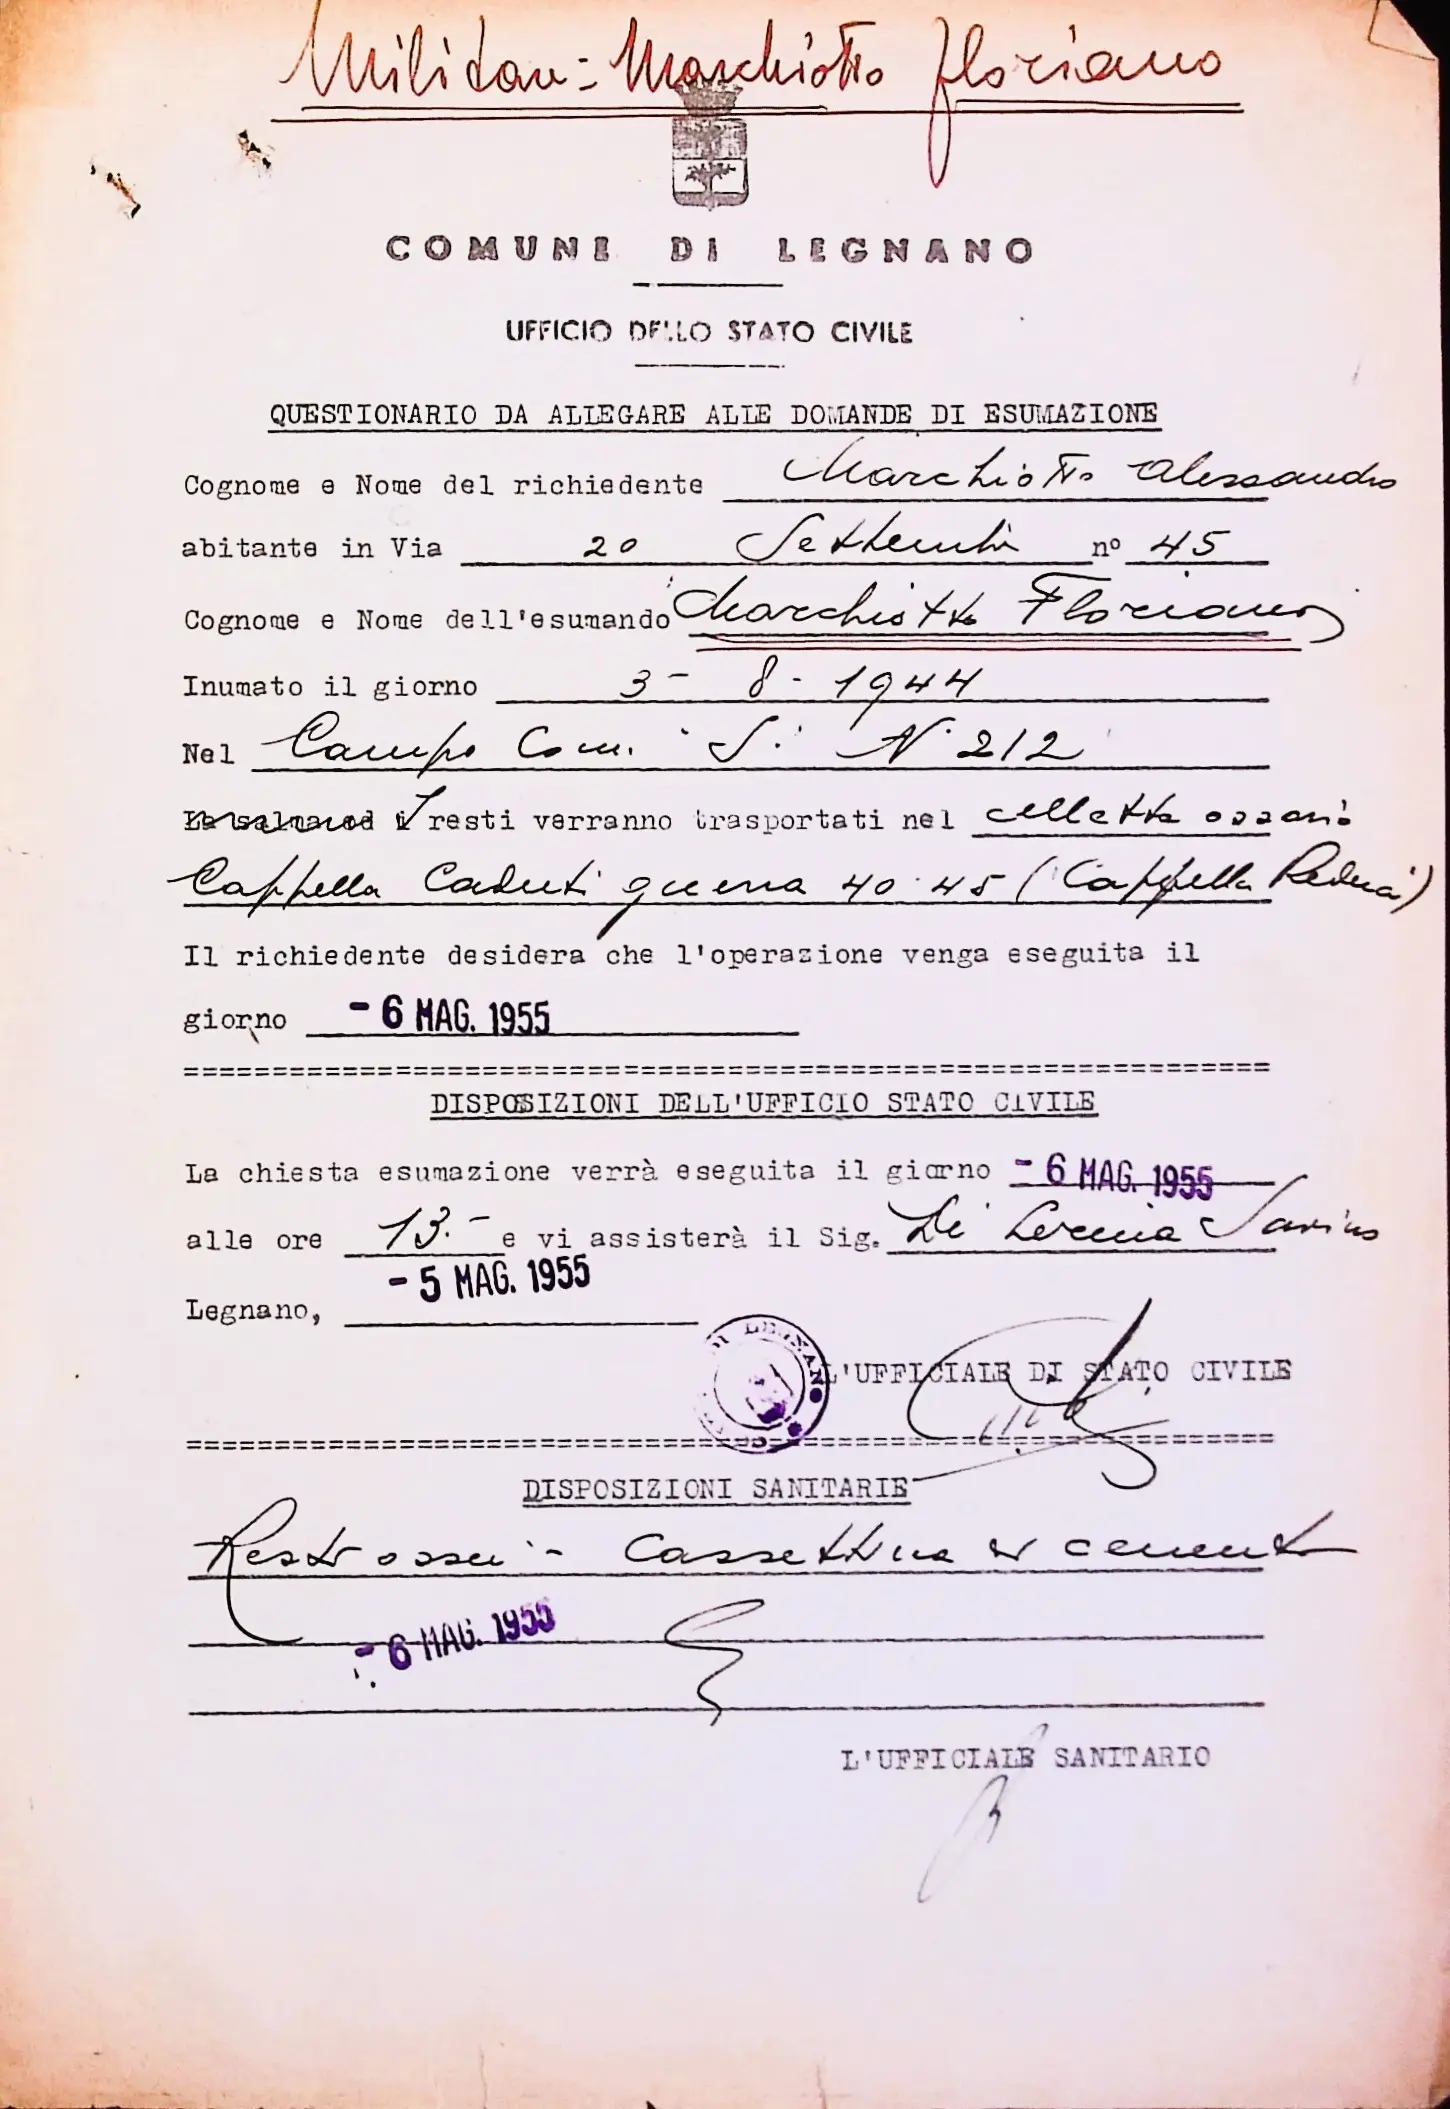 Militare = Marchiotto Floriano
COMUNE DI LEGNANO
UFFICIO DELLO STATO CIVILE
QUESTIONARIO DA ALLEGARE ALLE DOMANDE DI ESUMAZIONE
Cognome e Nome del richiedente Marchiotto Alessandro
abitante in Via 20 Settembre nº 45
Cognome e Nome dell'esumando Marchiotto Floriano
Inumato il giorno 3 - 8 - 1944
Nel Campo Com. S. N. 212
La salma od i resti verranno trasportati nel celletta ossario
Cappella Caduti guerra 40-45 (Cappella Reduci)
Il richiedente desidera che l'operazione venga eseguita il
giorno - 6 MAG. 1955
DISPOSIZIONI DELL'UFFICIO STATO CIVILE
La chiesta esumazione verrà eseguita il giorno - 6 MAG. 1955
alle ore 13.- e vi assisterà il Sig. Di Savino
- 5 MAG. 1955
Legnano,
DI LEGNANO
L'UFFICIALE DI STATO CIVILE
DISPOSIZIONI SANITARIE
Resti ossei - Cassettina di cemento
- 6 MAG. 1955
L'UFFICIALE SANITARIO